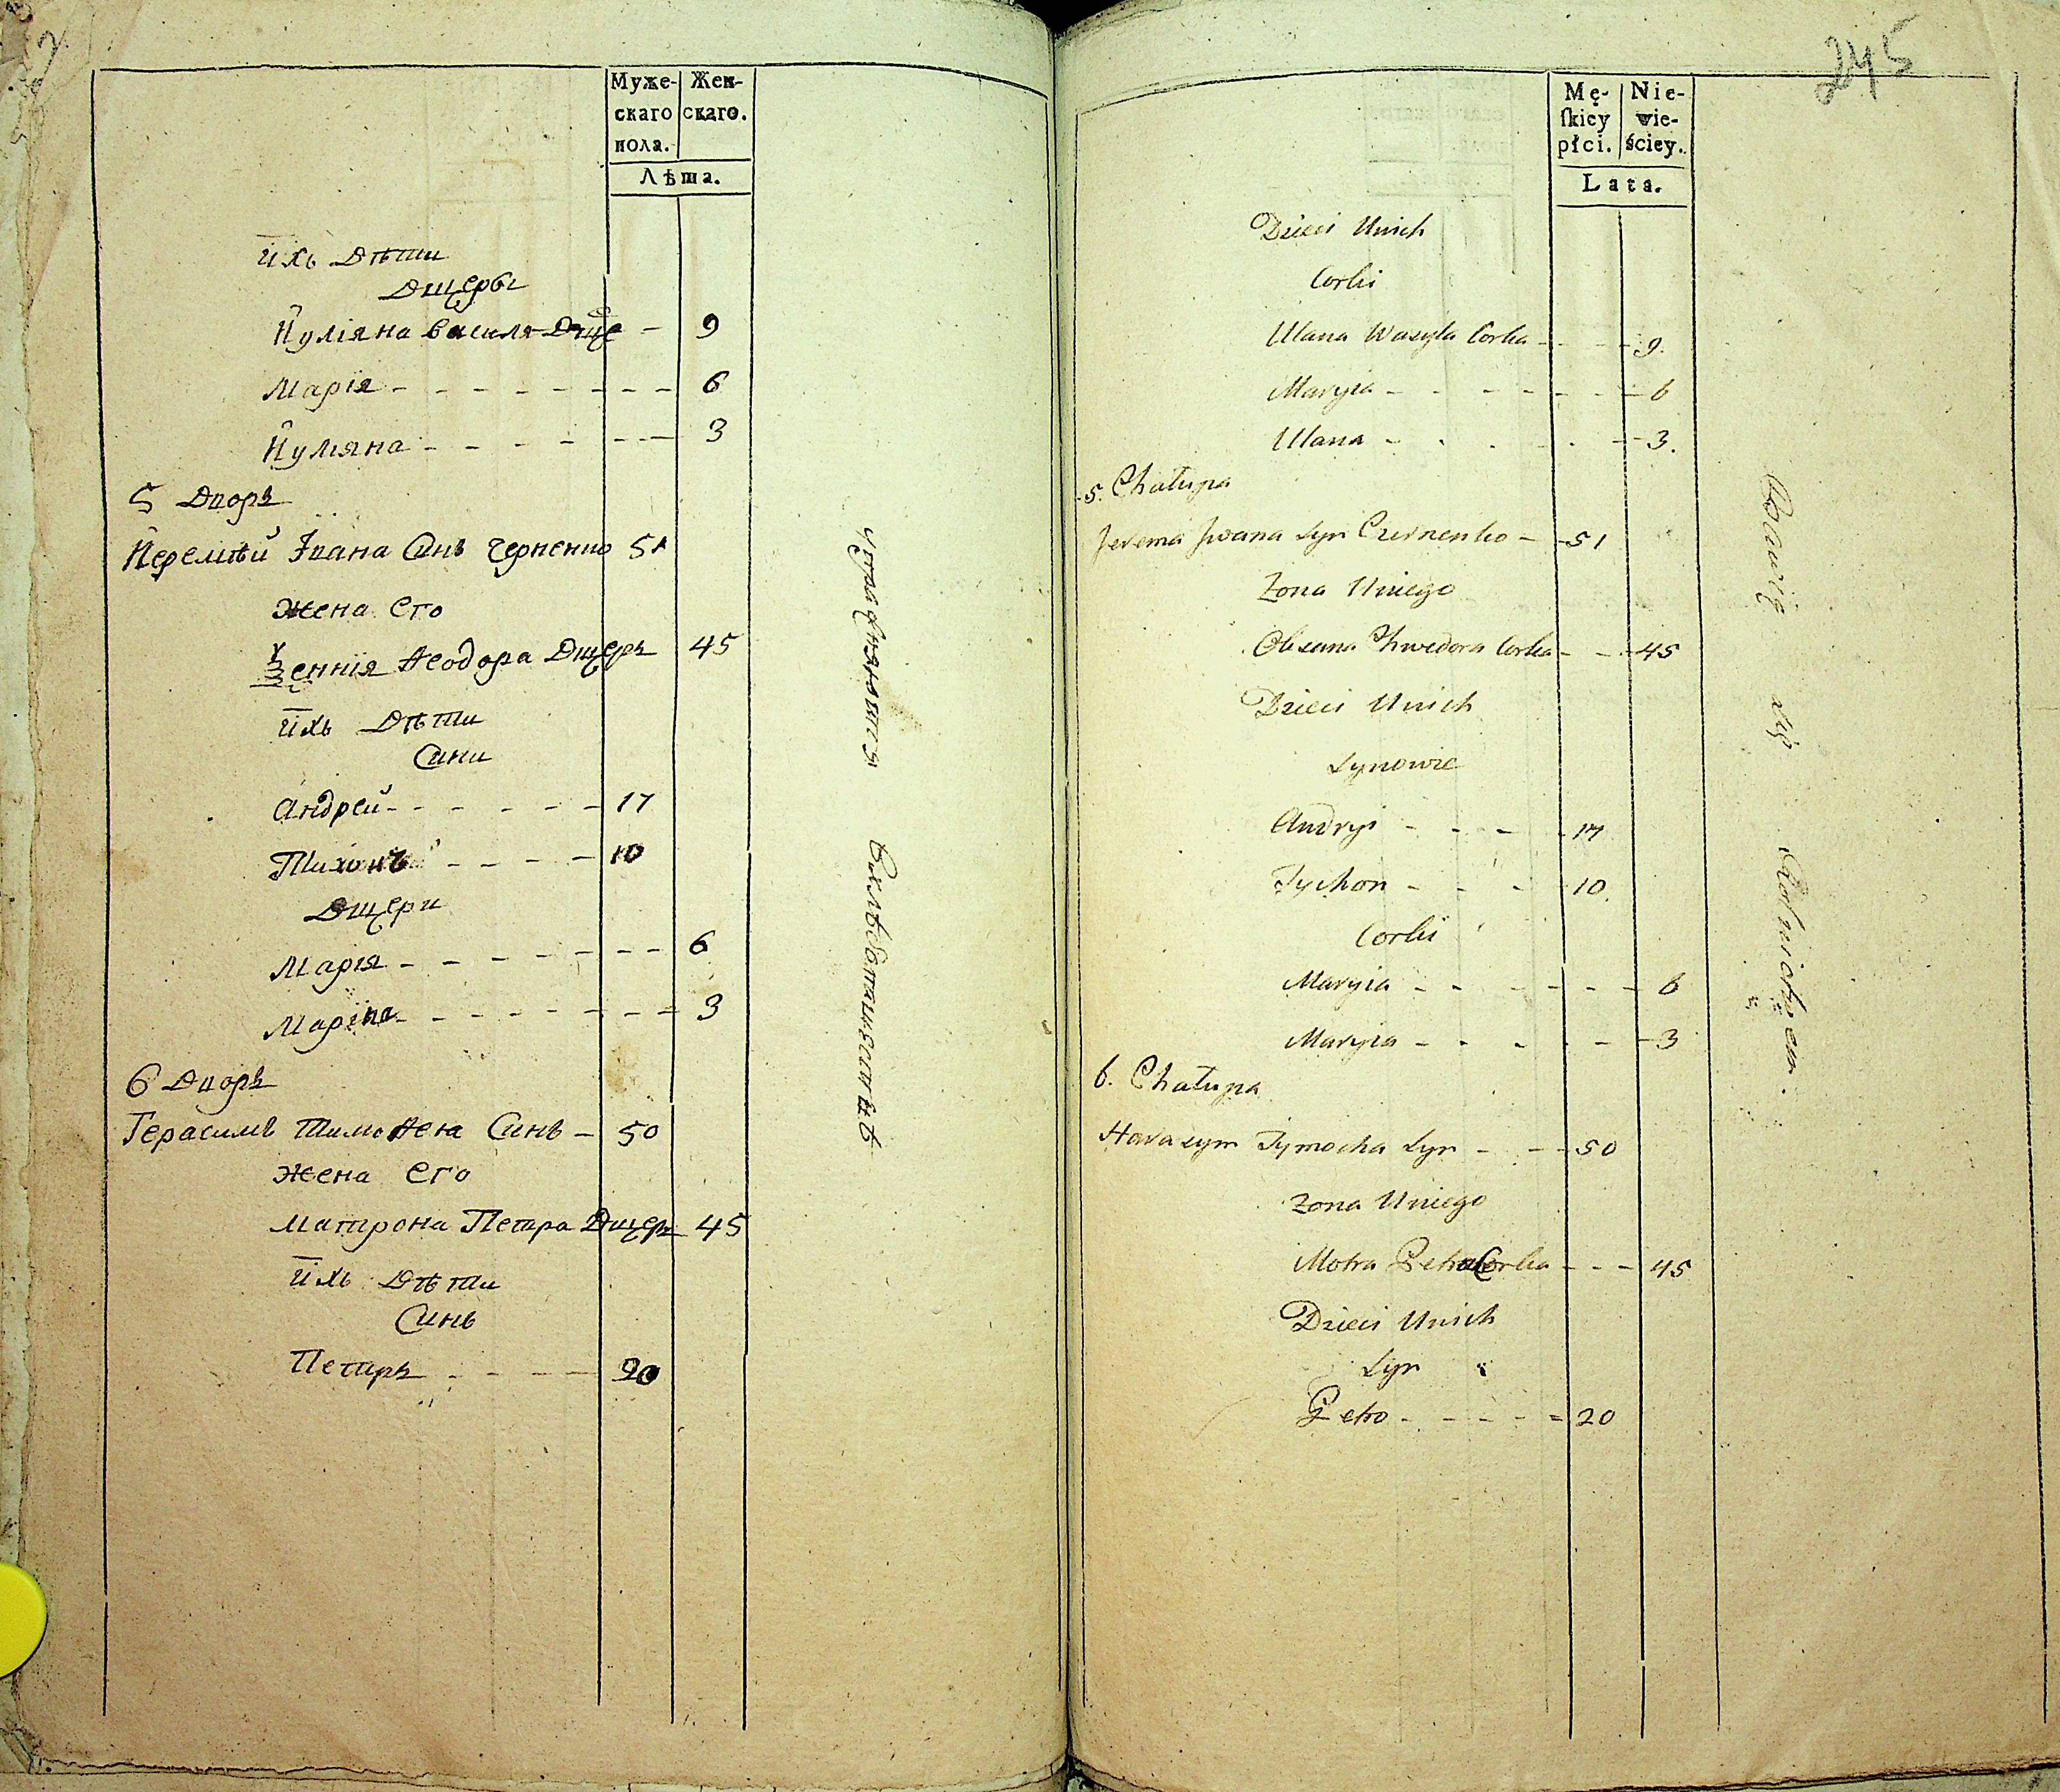 Муже-
скаго
пола.
Жен-
скаго.
Лѣта.
ихъ Дѣти
Дщеры
Иуліяна Василя Дще — 9
Марія - - - - - - - - 6
Иуліяна - - - - - - - 3
5 Дворъ
Иеремѣй Ивана Синъ Черненко 51
жена его
Ѯеннія Ѳеодора Дщеръ 45
ихъ Дѣти
Сини
Андрей - - - - - - 17
Тихонъ - - - - 10
Дщери
Марія - - - - - - - - 6
Маріна - - - - - - - - 3
6 Дворъ
Герасимъ Тимоѳея Синъ - 50
жена его
Матрона Петра Дщеръ 45
ихъ Дѣти
Синъ
Петръ - - - - 20
Упражняются
Вхлѣбопашествѣ
245
Mę-
ſkiey
płci.
Nie-
wie-
ściey.
Lata.
Dzieci Unich
Corki
Ulana Wasyla Corka - - - - 9.
Maryia - - - - - - - 6
Ulana - - - - - 3.
5. Chałupa
Jerema Jwana Syn Czernenko - - 51
Zona Uniego
Oksana Chwedora Corka - - - 45
Dzieci Unich
Synowie
Andryi - - - - 17
Tychon - - - 10.
Corki
Maryia - - - - - - - 6
Maryia - - - - - - 3
6. Chałupa
Harasym Tymocha Syn - - - 50
Zona Uniego
Motra Petra Corka - - - 45
Dzieci Unich
Syn
Petro - - - - - 20
Bawię się Rolnictwem.